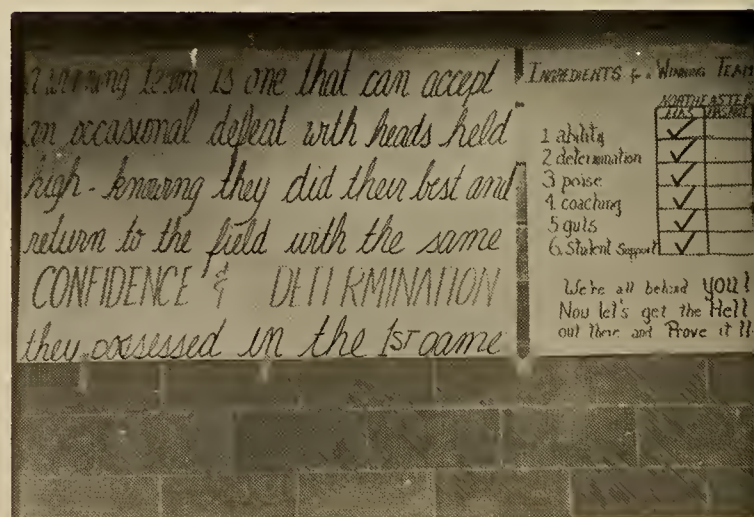 a winning team is one that can accept
an occasional defeat with heads held
high - knowing they did their best and
return to the field with the same
CONFIDENCE & DETERMINATION
they possessed in the 1ST game
INGREDIENTS for a WINNING TEAM
NORTHEASTER
HAS
1 ability ✓
2 determination ✓
3 poise ✓
4 coaching ✓
5 guts ✓
6. Student Support ✓
We're all behind YOU!
Now let's get the Hell
out there and Prove it!!